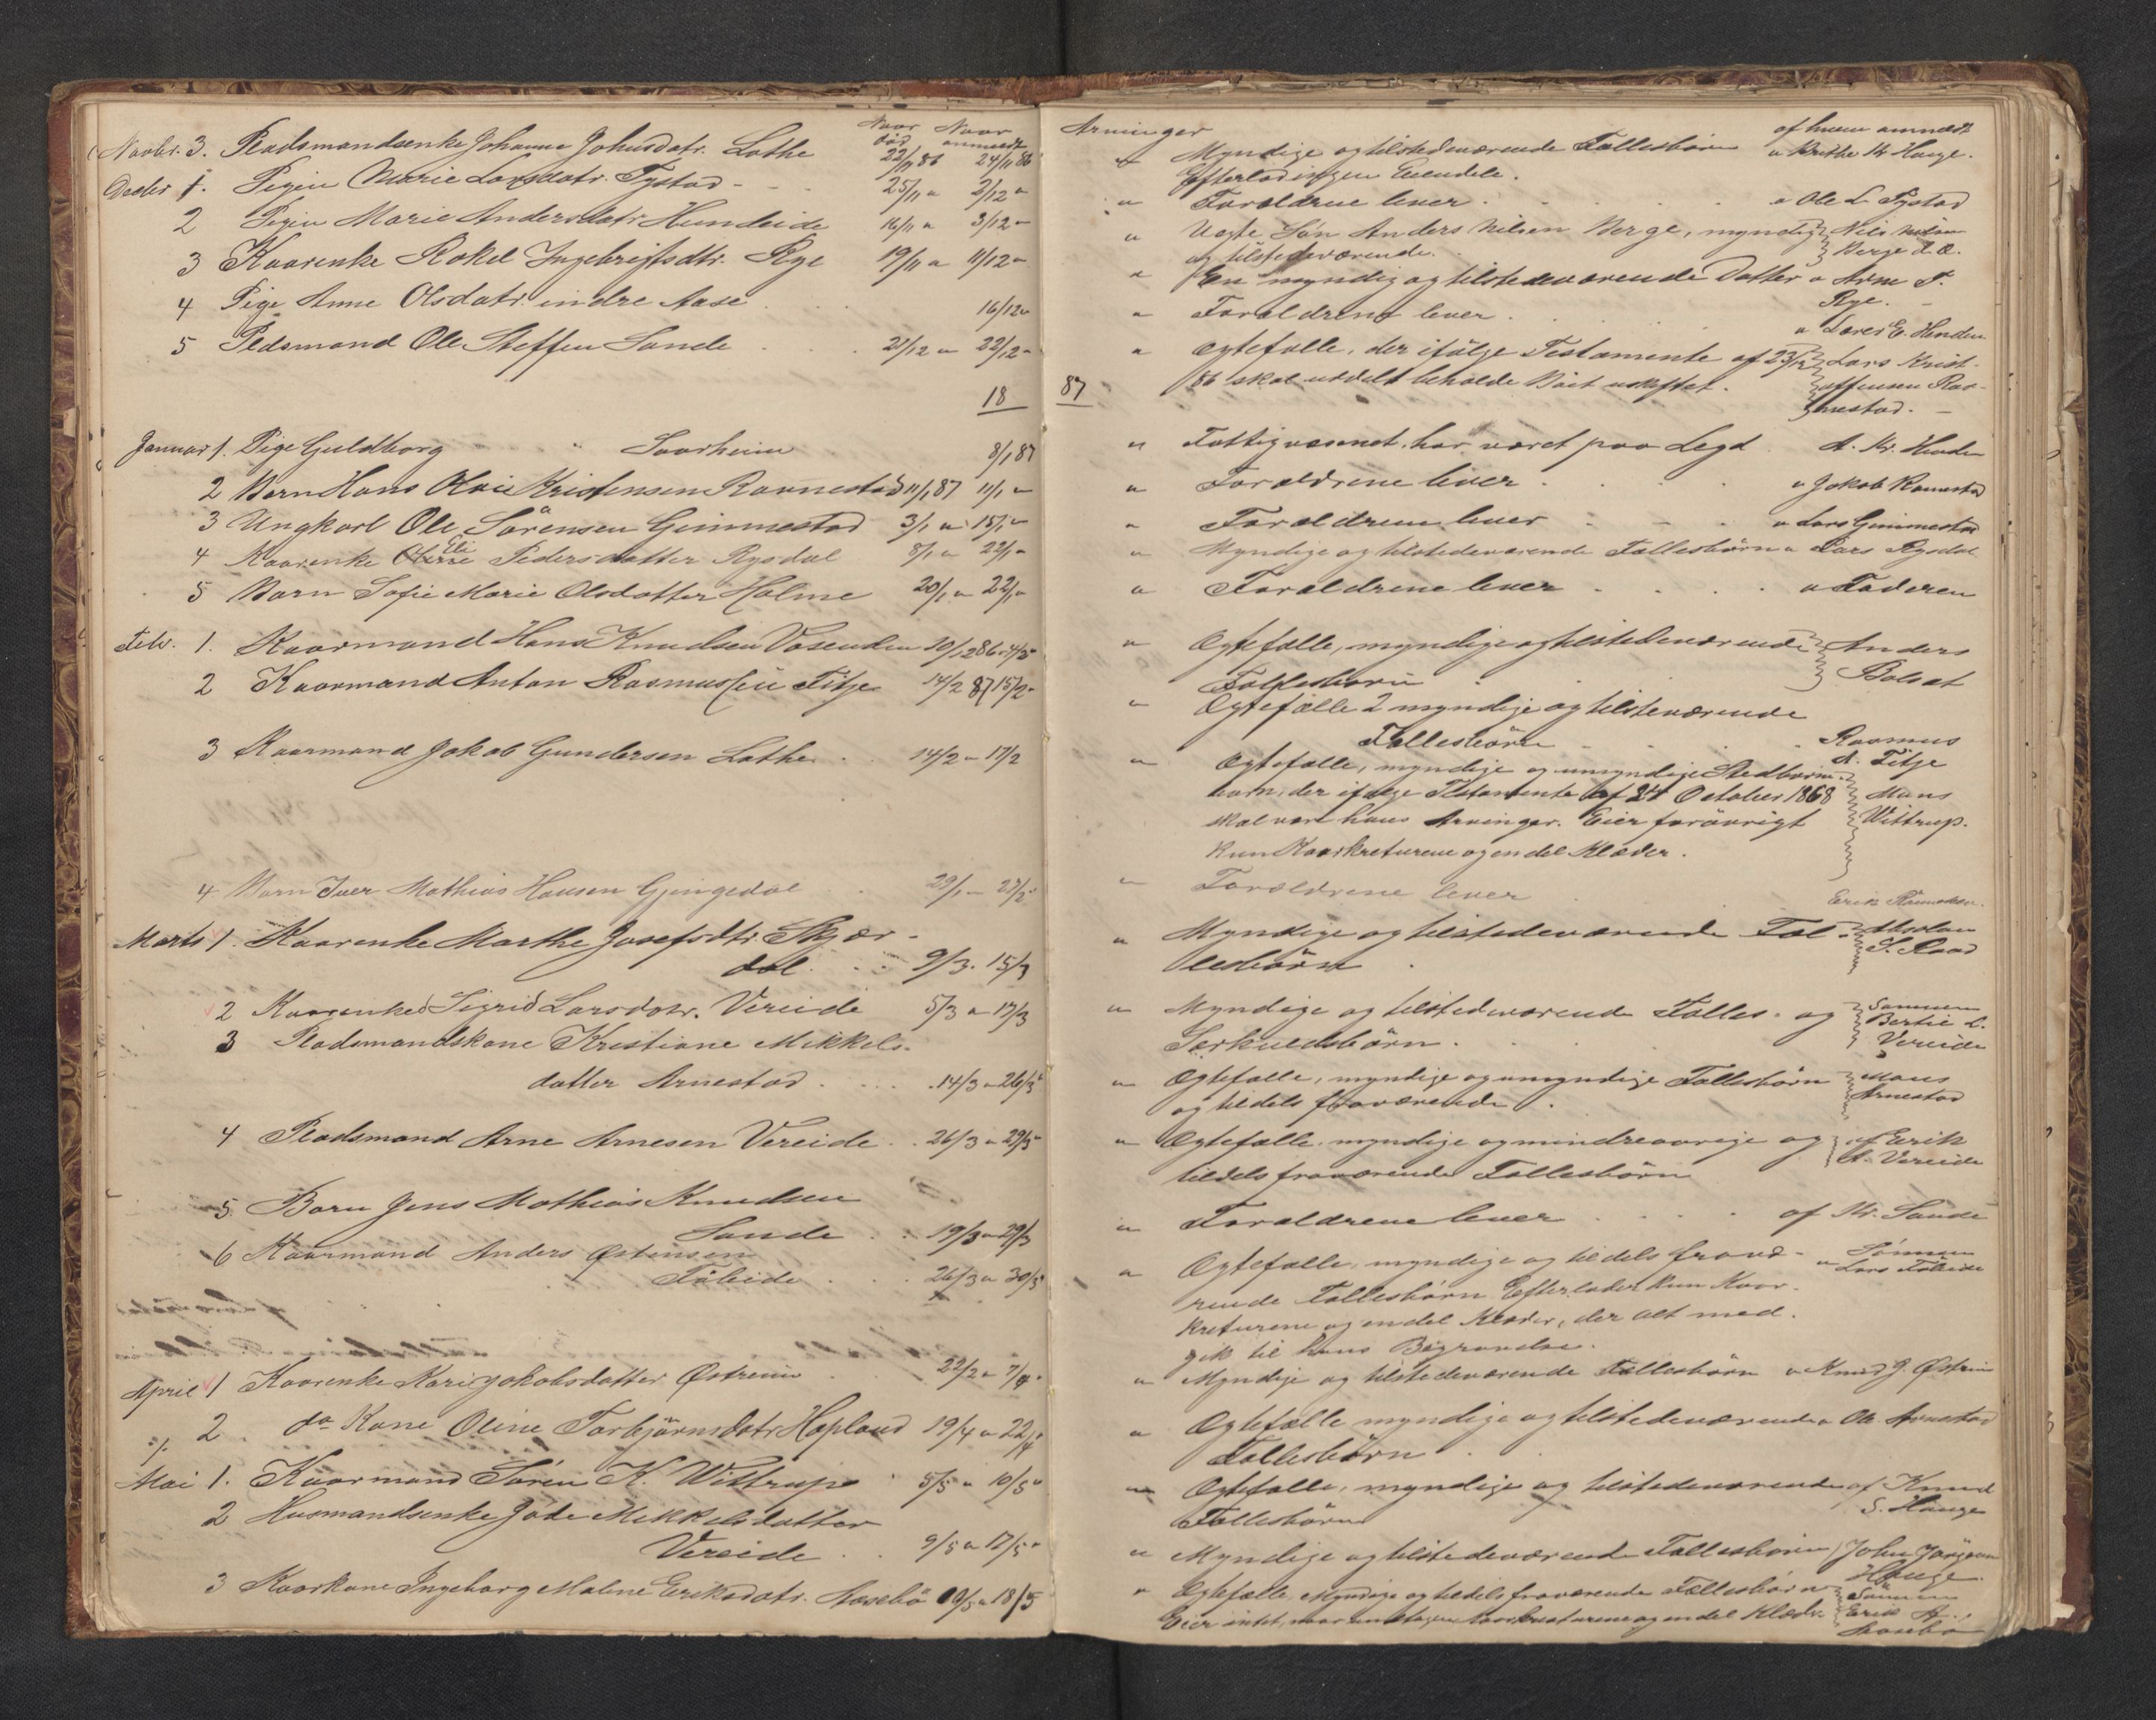 Naar død Naar anmeldt
Novbr. 3. Pladsmandsenke Johanne Johnsdatr. Lothe 22/11 86 24/11 86
Decbr 1. Pigen Marie Larsdatr. Tystad - - 25/11 " 2/12 "
2 Pigen Marie Andersdatr Hundeide 16/11 " 3/12 "
3 Kaarenke Rakel Ingebrigtsdtr. Rye 19/11 " 11/12 "
4 Pige Anne Olsdatr. indre Aase . . 16/12 "
5 Pladsmand Ole Steffen Sande . . 21/12 " 22/12 "
18
Januar 1. Pige Guldborg " Saarheim 8/1 87
2 Barn Hans Olai Kristensen Ravnestad 11/1 87 11/1 "
3 Ungkarl Ole Sörensen Gimmestad 3/1 " 15/1 "
4 Kaarenke Eli Pedersdatter Rysdal 8/1 " 22/1 "
5 Barn Sofie Marie Olsdatter Holme 20/1 " 22/1 "
Febr. 1. Kaarmand Hans Knudsen Vasenden 30/12 86
2 Kaarmand Anton Rasmussen Fitje 14/2 87 15/2 "
3 Kaarmand Jakob Gundersen Lothe . . 14/2 " 17/2
4. Barn Iver Mathias Hansen Gjengedal . . 29/1 " 27/2 "
Marts 1. Kaarenke Marthe Josefsdtr. Skjær-
dal . . . 9/3 . 15/3
2 Kaarenke Sigrid Larsdatr. Vereide 5/3 " 17/3
3 Pladsmandskone Kristiane Mikkels-
datter Arnestad . . . . 14/3 " 26/3 "
4 Pladsmand Arne Arnesen Vereide . . 26/3 " 29/3 "
5. Barn Jens Mathias Knudsen
Sande . : 19/3 " 29/3
6 Kaarmand Anders Østensen
Föleide . . . 26/3 " 30/3
April 1 Kaarenke Kari Jakobsdatter Østreim . 22/2 " 7/4 "
2 . do Kone Oline Torbjörnsdatr Hopland 19/4 " 22/4
Mai 1. Kaarmand Sören K. Wittrup . 5/5 " 10/5 "
2 Husmandsenke Jode Mikkelsdatter
Vereide . . 9/5 " 17/5 "
3 Kaarkone Ingeborg Maline Eriksdatr. Aasebö 10/5 " 18/5
Arvinger af hvem anmeldt
" Myndige og tilstedeværende Fællesbörn " Brithe Kr Hauge.
Efterladingen Eiendele.
" Forældrene lever . . . . . " Ole L. Tystad
" Uægte Sön Anders Nilsen Berge, myndig Nils Nilsen
og tilstedeværende. Berge d. æ.
" En myndig og tilstedeværende Datter " Arne T.
Rye.
" Forældrene lever . . . . " Lars E. Hunden
" Egtefælle, der ifölge Testamente af 23/12 Lars Krist-
86 skal udelt beholde Boet uskiftet. offersen Rav-
nestad. -
87
" Fattigvæsenet, har været paa Legd . A. Kr. Hunden
" Forældrene lever . . . . " Jakob Ravnestad
" Forældrene lever . . . " Lars Gimmestad
" Myndige og tilstedeværende Fællesbörn " Lars Rysdal
" Forældrene lever . . . . " Faderen
" Egtefælle, myndige og tilstedeværende Anders
Fællesbörn . . . Bolsæt
" Egtefælle 2 myndige og tilsteværende
Fællesbörn . . . . Rasmus
A. Fitje
" Egtefælle, myndige og umyndige Stedbörns-
barn, der ifölge Testamente af 24 October 1868 Mons
skal være hans Arvinger. Eier forövrigt Wittrup.
kun Kaarkreturene og en del Klæder.
" Forældrene lever . Erik
" Myndige og tilstedeværende Fæl- Absalon
lesbörn . S. Raad
" Myndige og tilstedeværende Fælles- og Sönnen
Særkuldsbörn . . . . Bertie L.
Vereide
" Egtefælle, myndige og umyndige Fællesbörn Mons
og tildels fraværende . Arnestad
" Egtefælle, myndige og mindreaarige og af Erik
tildels fraværende Fællesbörn A. Vereide
" Forældrene lever . . . . af Kr. Sande
" Egtefælle, myndige og tildels fravæ- " Sönnen
rende Fællesbörn Efterlader kun Kaar- Lars Föleide
kreturene og en del Klæder, der alt med-
gik til hans Begravelse.
" Myndige og tilstedeværende Fællesbörn " Knud J. Østreim
" Egtefælle myndige og tilstedeværende " Ole Arnestad
Fællesbörn . .
" Egtefælle, myndige og tilstedeværende af Knud
Fællesbörn S. Hauge
" Myndige og tilstedeværende Fællesbörn John Jörgensen
Hauge.
" Egtefælle, myndige og tildels fraværende Fællesbörn Sönnen
Eier intet, naar undtagen kaarkreaturene og en del Klæder. Erik A.
Aasebö